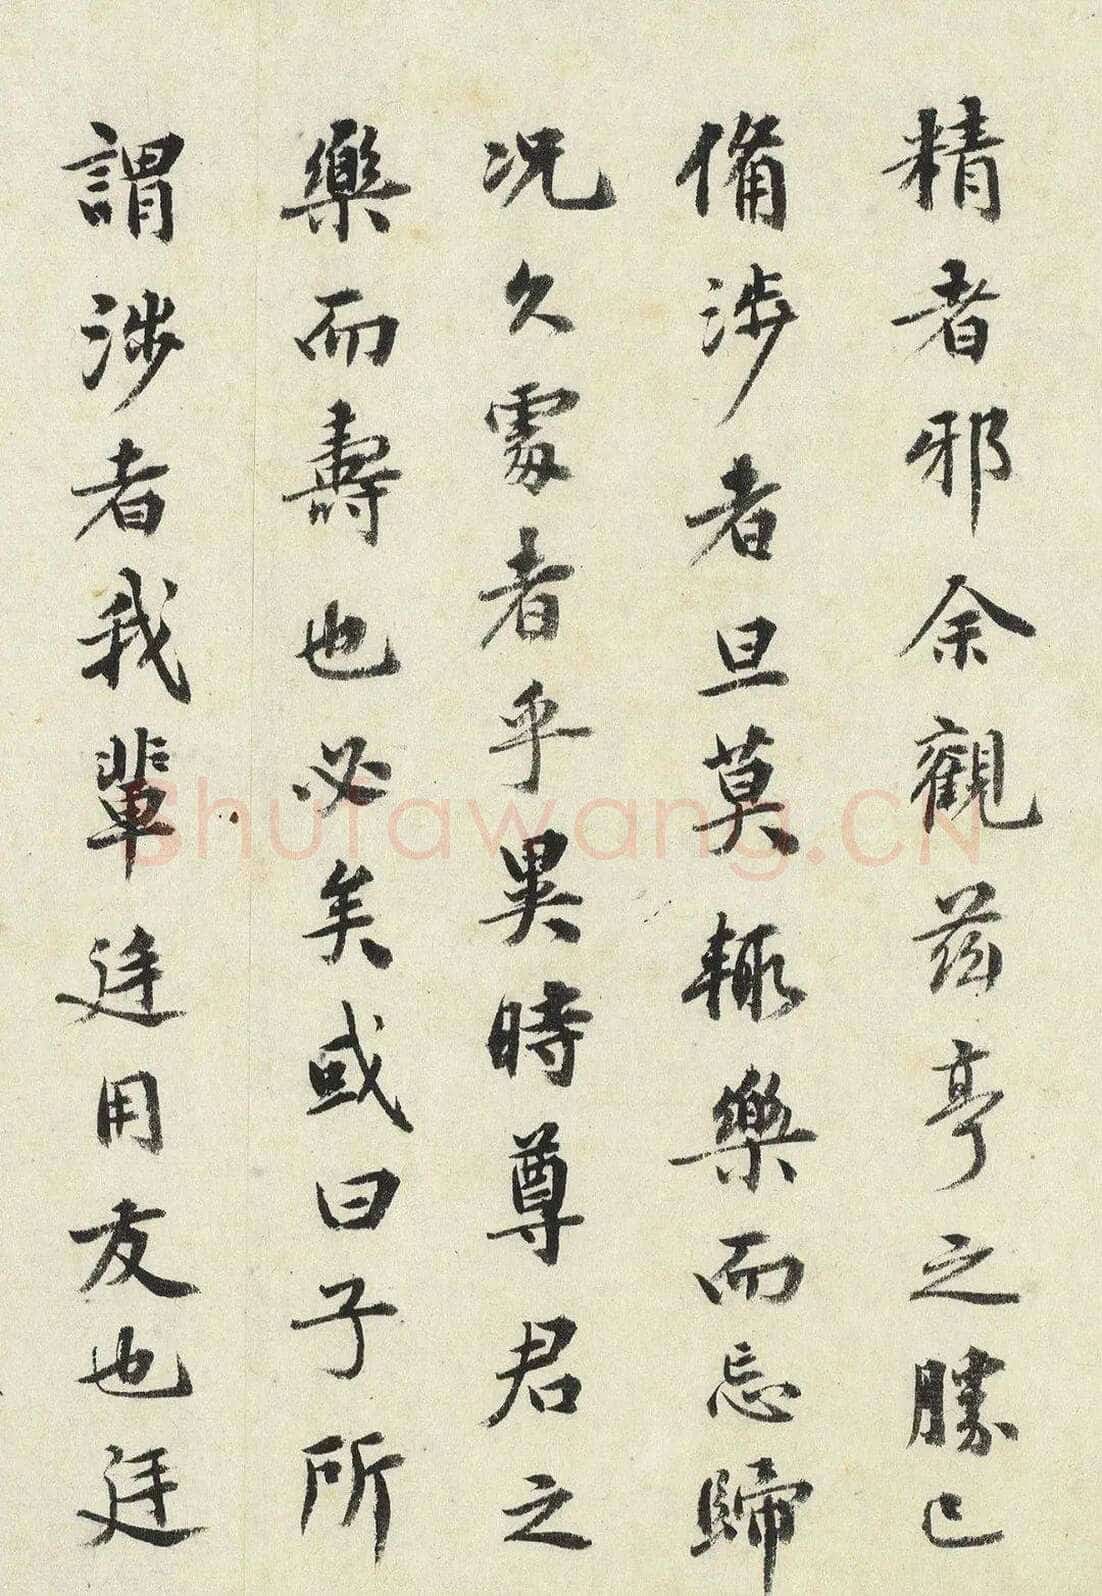 精者邪余觀茲亭之勝已
備涉者旦莫輒樂而忘歸
况久處者乎異時尊君之
樂而壽也必矣或曰子所
謂涉者我輩廷用友也廷
Shufawang.CN